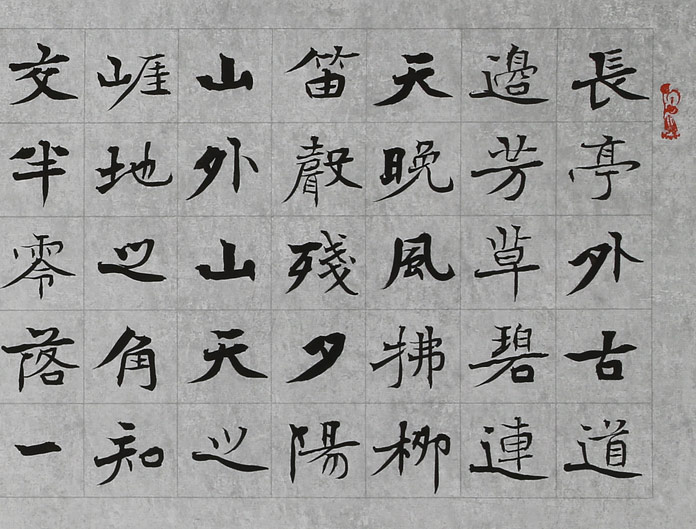 長亭外古道
邊芳草碧連
天晚風拂柳
笛聲殘夕陽
山外山天之
崕地之角知
交半零落一